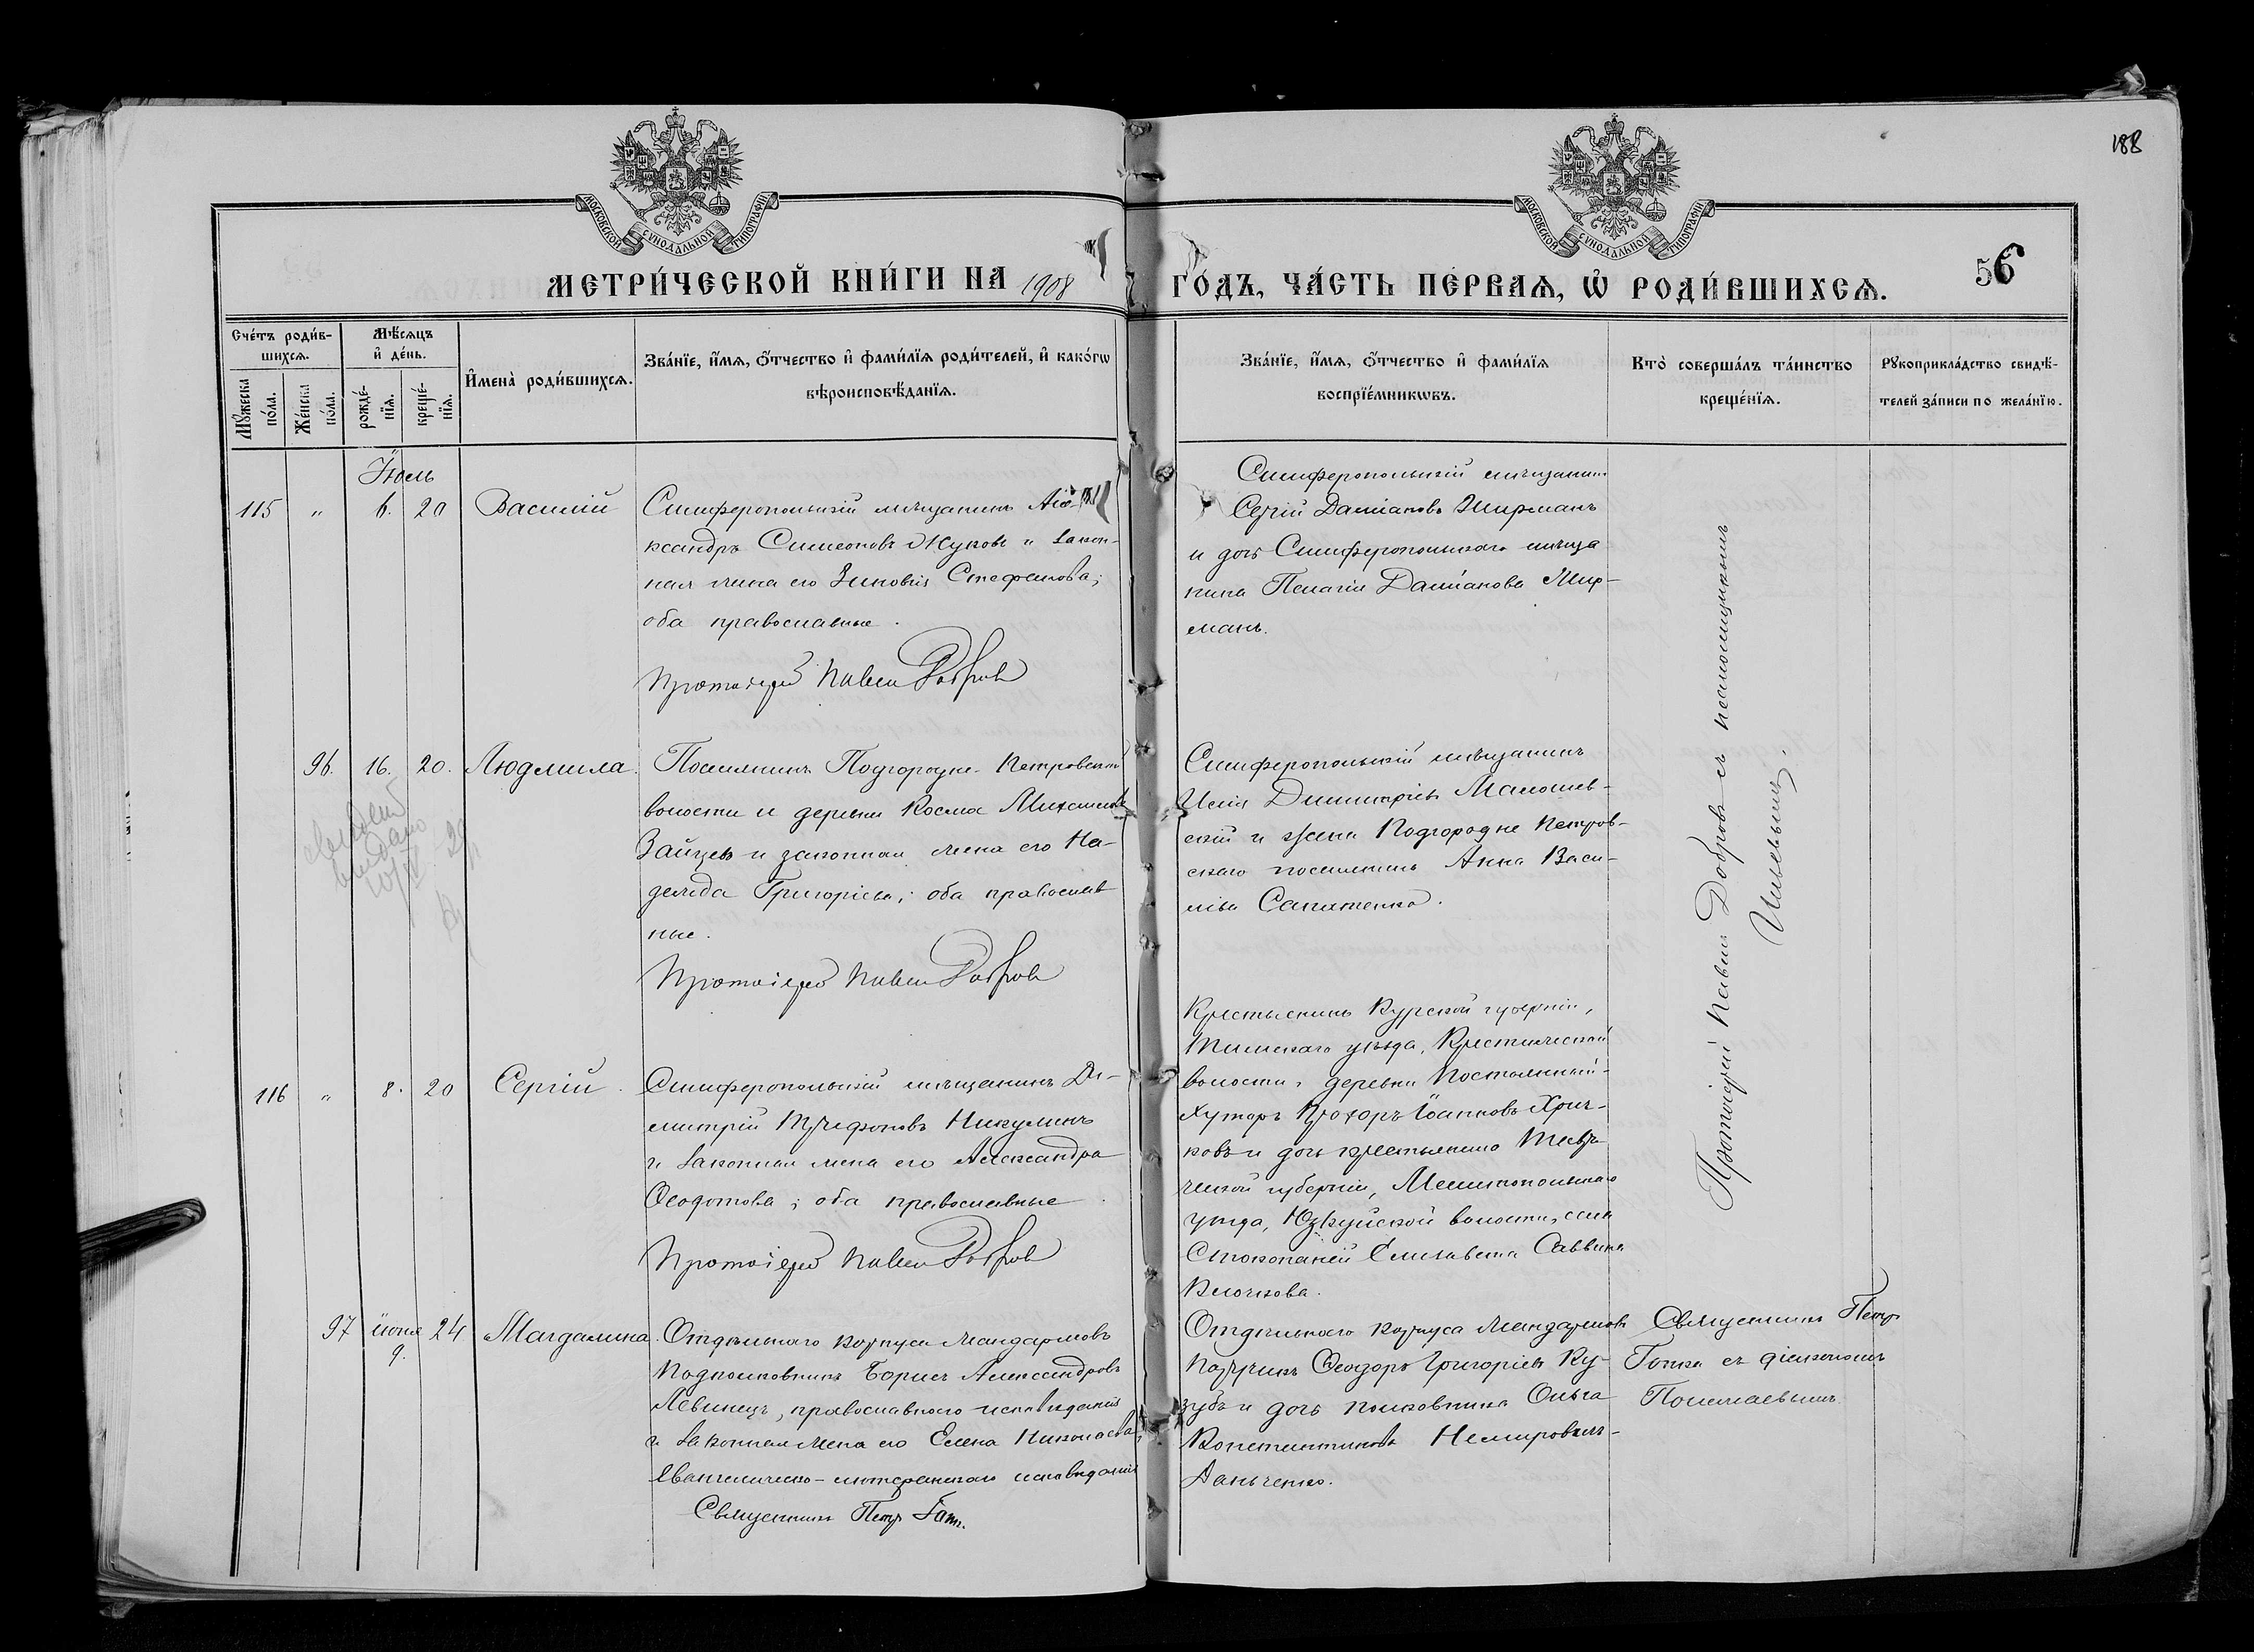 188
МОСКОВСКОЙ СУНОДАЛЬНОЙ ТИПОГРАФІИ
МОСКОВСКОЙ СУНОДАЛЬНОЙ ТИПОГРАФІИ
МЕТРИ́ЧЕСКОЙ КНИ́ГИ НА 1908
ГО́ДЪ, ЧА́СТЬ ПЕ́РВАѦ, Ѡ РОДИ́ВШИХСѦ.
56
Сче́тъ роди́в-
шихсѧ.
Мꙋжеска по́ла.
Же́нска по́ла.
Мѣ́сѧцъ
и҆ де́нь.
рожде́-
нїѧ.
креще́-
нїѧ.
И҆мена̀ роди́вшихсѧ.
Зва́нїе, и҆́мѧ, ѻ҆́тчество и҆ фами́лїѧ роди́телей, и҆ како́гѡ
вѣроисповѣ́данїѧ.
Зва́нїе, и҆́мѧ, ѻ҆́тчество и҆ фами́лїѧ
воспрїе́мникѡвъ.
Кто̀ соверша́лъ та́инство
креще́нїѧ.
Рꙋкоприкла́дство свидѣ́-
телей за́писи по жела́нїю.
Іюль
115 " 6. 20 Василій
Симферопольскій мѣщанинъ Але-
ксандръ Симеоновъ Жуковъ и закон-
ная жена его Зиновія Стефанова;
оба православные.
Протоіерей Павелъ Добровъ
Симферопольскій мѣщанинъ
Сергій Даміановъ Ширманъ
и дочь Симферопольскаго мѣща
нина Пелагія Даміанова Шир-
манъ.
96. 16. 20. Людмила.
Поселянинъ Подгородне-Петровской
волости и деревни Косма Михаиловъ
Зайцевъ и законная жена его На-
дежда Григоріева; оба православ
ные.
Протоіерей Павелъ Добровъ
Симферопольскій мѣщанинъ
Илія Димитріевъ Малошев-
скій и жена Подгородне Петров-
скаго поселянина Анна Васи-
ліева
выдано
116 " 8. 20 Сергій.
Симферопольскій мѣщанинъ Ди-
митрій Трифоновъ Никулинъ
и законная жена его Александра
Ѳеодотова; оба православные.
Протоіерей Павелъ Добровъ
Крестьянинъ Курской губерніи,
Тимскаго уѣзда,
волости, деревни Постоянный-
Хуторъ Прохоръ Іоанновъ
и дочь крестьянина Таври-
ческой губерніи, Мелитопольскаго
уѣзда, Юзкуйской волости, села
Стокопаней Елизавета Саввина
Клочкова.
Протоіерей Павелъ Добровъ съ псаломщикомъ
97 іюня 9. 24 Магдалина.
Отдѣльнаго корпуса жандармовъ
Подполковникъ Борисъ Александровъ
Левинецъ, православнаго исповѣданія
и законная жена его Елена Николаева,
Евангелическо-лютеранскаго исповѣданія
Священникъ Петръ
Отдѣльнаго корпуса жандармовъ
Поручикъ Ѳеодоръ Григоріевъ Ку-
зубъ и дочь полковника Ольга
Константинова Немировичъ-
Данченко.
Священникъ Петръ
съ діакономъ